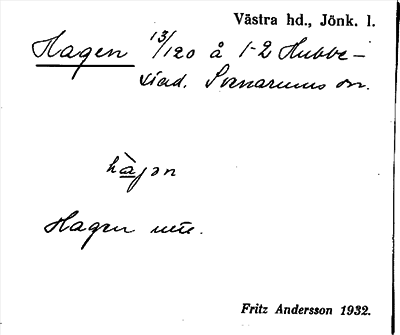 Västra hd., Jönk. l.
Hagen 13/120 å 1-2 Hubbe-
stad. Svenarums sn.
hàjən
Hagen
Fritz Andersson 1932.